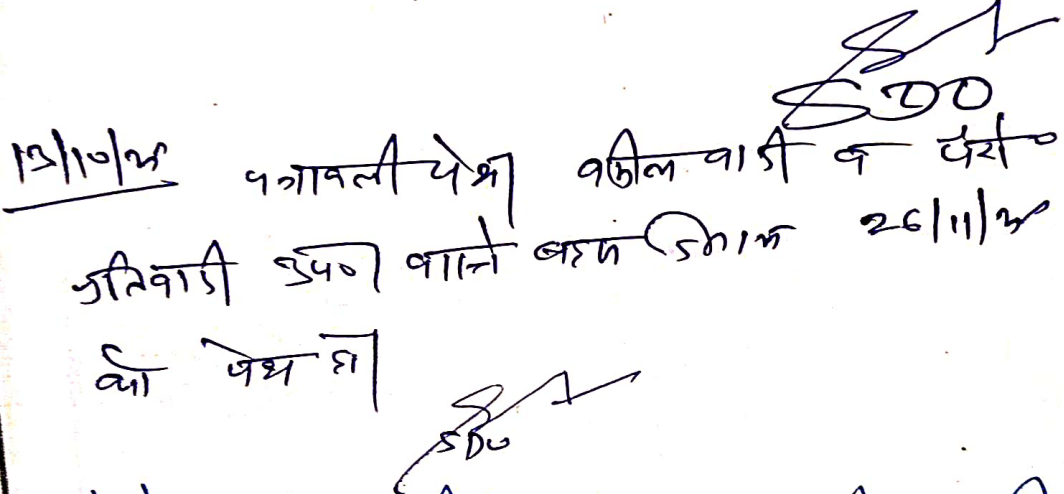 SDO
13/10/
पत्रावली पेश। वकील वादी व पैरो०
प्रतिवादी उप०। वास्ते बहस दिनांक 26/11/
को पेश हो।
SDO